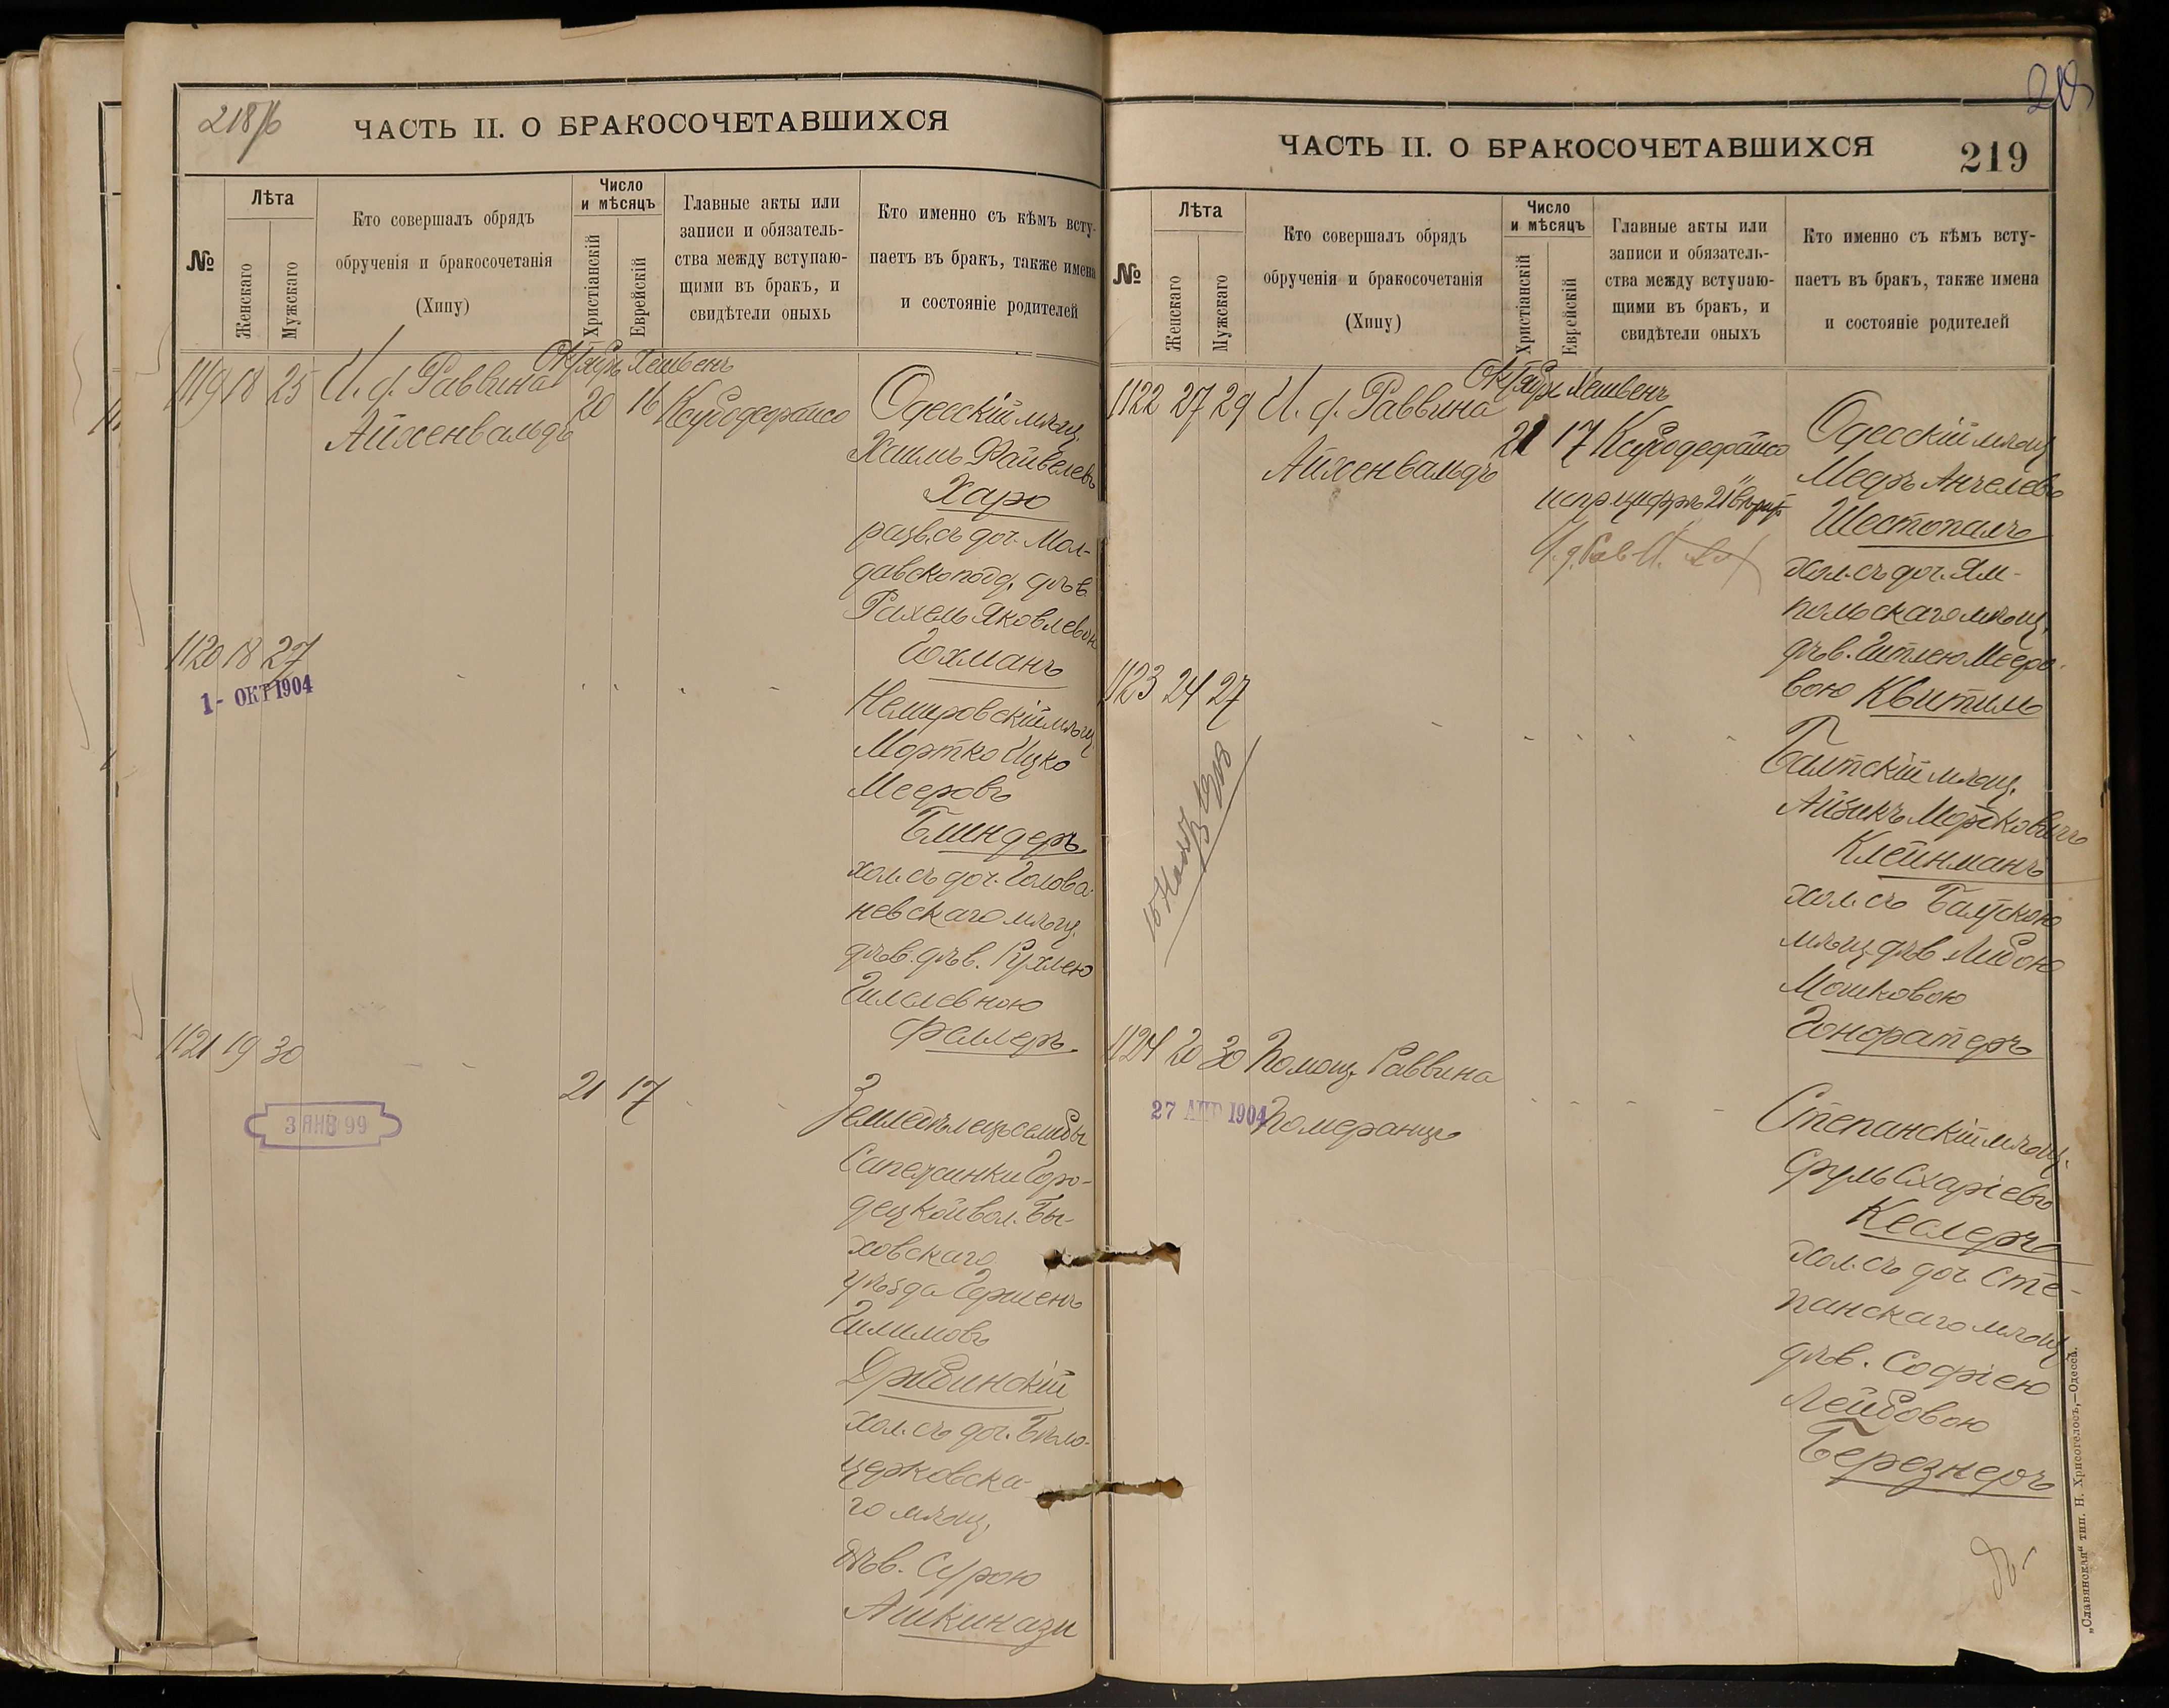 218/б
ЧАСТЬ II. О БРАКОСОЧЕТАВШИХСЯ
№
Лѣта
Женскаго
Мужскаго
Кто совершалъ обрядъ
обрученія и бракосочетанія
(Хипу)
Число
и мѣсяцъ
Христіанскій
Еврейскій
Главные акты или
записи и обязатель-
ства между вступаю-
щими въ бракъ, и
свидѣтели оныхъ
Кто именно съ кѣмъ всту-
паетъ въ бракъ, также имена
и состояніе родителей
Октябрь Хешвенъ
1119 18 25 И. д. Раввина
Айхенвальдъ
20 16
Одесскій мѣщ.
Хаимъ Файвелевъ
Харо
разв. съ доч. Мол-
давскопод. дѣв.
Рахель Яковлевою
Гохманъ
1120 18 27
1- ОКТ 1904
Немировскій мѣщ.
Мортко Ицко
Мееровъ
Блиндеръ
хол. съ доч. Голова-
невскаго мѣщ.
дѣв. дѣв. Рухлею
Фаллеръ
1121 19 30
3 ЯНВ 99
21 17
Земледѣлецъ
Горо-
децкой вол. Бы-
ховскаго
уѣзда Гершенъ
Дрибинскій
хол. съ доч. Бѣло-
церковска-
го мѣщ.
дѣв. Сурою
Ашкинази
ЧАСТЬ II. О БРАКОСОЧЕТАВШИХСЯ
219
№
Лѣта
Женскаго
Мужскаго
Кто совершалъ обрядъ
обрученія и бракосочетанія
(Хипу)
Число
и мѣсяцъ
Христіанскій
Еврейскій
Главные акты или
записи и обязатель-
ства между вступаю-
щими въ бракъ, и
свидѣтели оныхъ
Кто именно съ кѣмъ всту-
паетъ въ бракъ, также имена
и состояніе родителей
Октябрь Хешвенъ
1122 27 29 И. д. Раввина
Айхенвальдъ
21 17
Одесскій мѣщ.
Мееръ Анчелевъ
Шестопалъ
хол. съ доч. Ям-
польскаго мѣщ.
дѣв. Гитлею Мееро-
вою Квитиль
1123 24 27
Балтскій мѣщ.
Айзикъ Мортковичъ
Клейнманъ
хол. съ Балтскою
мѣщ. дѣв. Либою
Мошковою
Гоноратеръ
1124 20 30 Помощ. Раввина
27 АПР 1904
Померанцъ
Степанскій мѣщ.
Сруль Схаріевъ
Кеслеръ
хол. съ доч. Сте-
панскаго мѣщ.
дѣв. Софіею
Лейбовою
Березнеръ
„Славянская“ тип. Н. Хрисогелосъ,—Одесса.